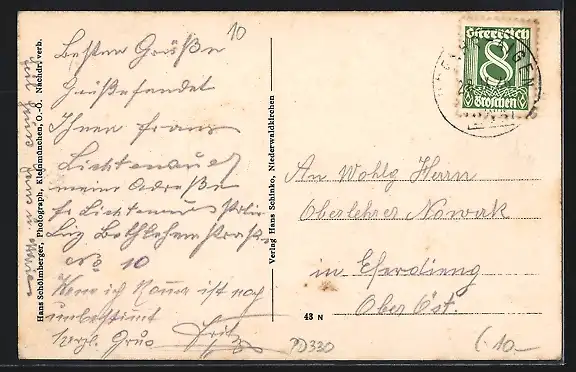 10
Besten Grüße
sendet
Ihnen Franz
Lichtenauer
meine Adreße
Fr Lichtenauer
Linz Bethlehemstraße
No 10
Wenn ich komme ist noch
unbestimt
Herzl. Gruß Fritz
Hans Schölmberger, Photograph, Kleinmünchen, O.-Ö. Nachdr. verb.
Verlag Hans Schinko, Niederwaldkirchen
Österreich
8
Groschen
An Wohlg Herrn
Oberlehrer Nowak
in Eferdieng
Ober Öst.
43 N
PD330
10-